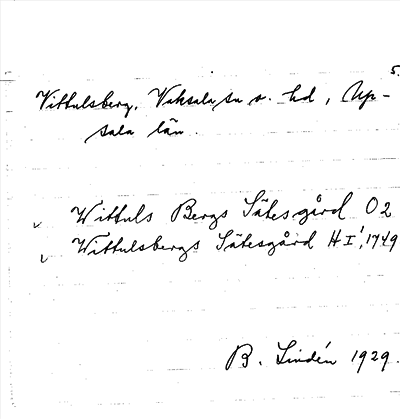 5.
Vittulsberg, Vaksala sn o. hd, Up-
sala län.
Wittuls Bergs Sätesgård O2
Wittulsbergs Sätesgård H I¹, 1749
B. Lindén 1929.